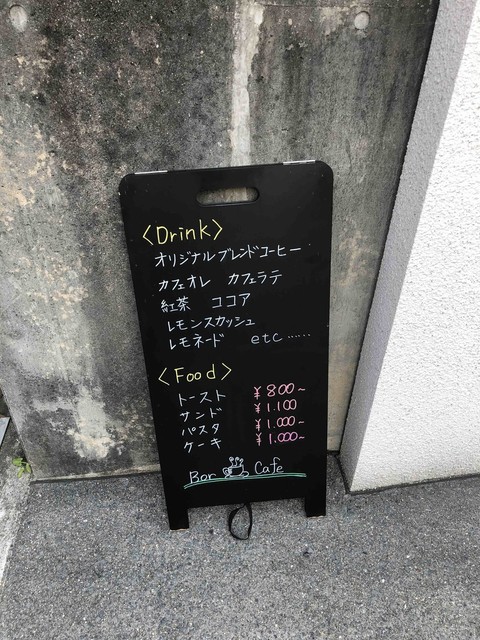 <Drink>
オリジナルブレンドコーヒー
カフェオレ カフェラテ
紅茶 ココア
レモンスカッシュ
レモネード etc……
<Food>
トースト ¥800~
サンド ¥1.100
パスタ ¥1.000~
ケーキ ¥1.000~
Bor Cafe